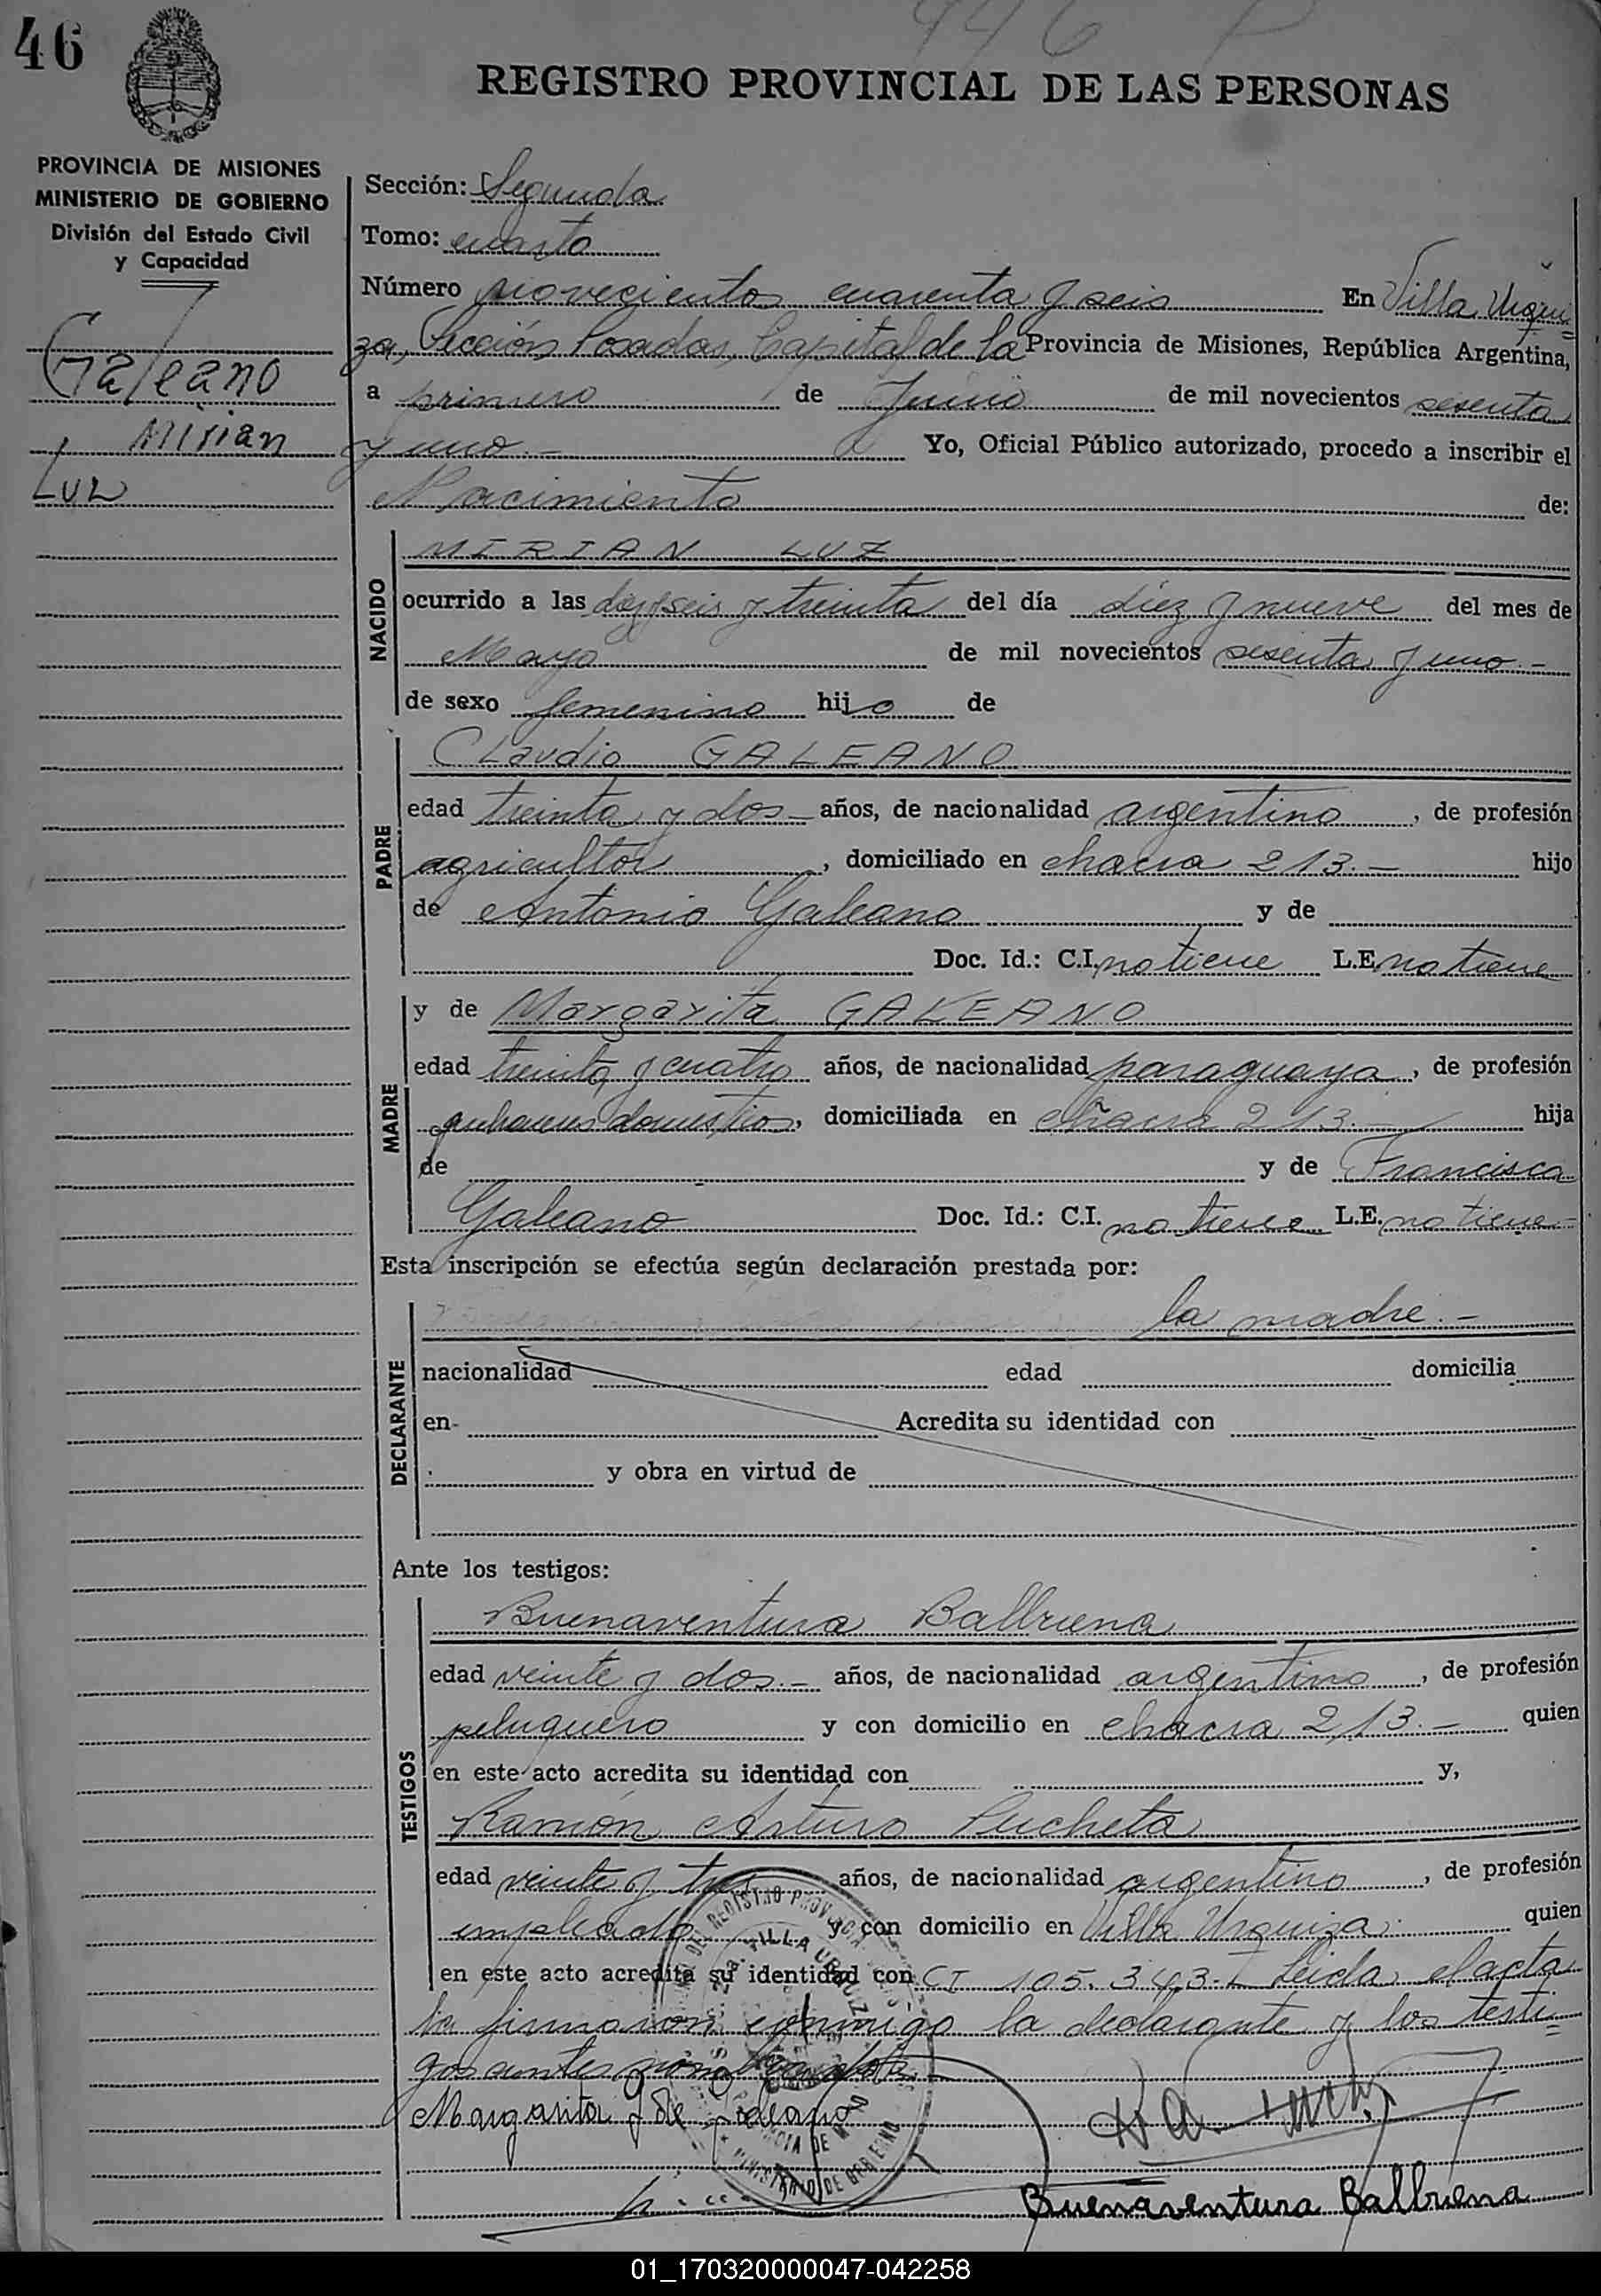 46
946
REGISTRO PROVINCIAL DE LAS PERSONAS
PROVINCIA DE MISIONES
MINISTERIO DE GOBIERNO
División del Estado Civil
y Capacidad
Galeano
Mirian
Luz
Sección: Segunda
Tomo: cuarto
Número novecientos cuarenta y seis En Villa Urqui=
za, Sección Posadas, Capital de la Provincia de Misiones, República Argentina,
a primero de Junio de mil novecientos sesenta
y uno.- Yo, Oficial Público autorizado, procedo a inscribir el
Nacimiento de:
NACIDO
MIRIAN LUZ
ocurrido a las diez y seis y treinta del día diez y nueve del mes de
Mayo de mil novecientos sesenta y uno.-
de sexo femenino hijo de
PADRE
Claudio GALEANO
edad treinta y dos años, de nacionalidad argentino, de profesión
agricultor, domiciliado en chacra 213.- hijo
de Antonio Galeano y de
Doc. Id.: C.I. no tiene L.E. no tiene
MADRE
y de Margarita GALEANO
edad treinta y cuatro años, de nacionalidad paraguaya, de profesión
domesticos, domiciliada en chacra 213.- hija
de y de Francisca
Galeano Doc. Id.: C.I. no tiene L.E. no tiene-
Esta inscripción se efectúa según declaración prestada por:
DECLARANTE
la madre.-
nacionalidad edad domicilia
en- Acredita su identidad con
y obra en virtud de
Ante los testigos:
TESTIGOS
Buenaventura Balbuena
edad veinte y dos.- años, de nacionalidad argentino, de profesión
peluquero y con domicilio en chacra 213.- quien
en este acto acredita su identidad con y,
Ramón Arturo Pucheta
edad veinte y tres años, de nacionalidad argentino, de profesión
empleado y con domicilio en Villa Urquiza. quien
en este acto acredita su identidad con CI 105.343.- Leida el acta
la firmaron conmigo la declarante y los testi=
gos antes nombrados.
Margarita G de Galeano
Buenaventura Balbuena
01_170320000047-042258